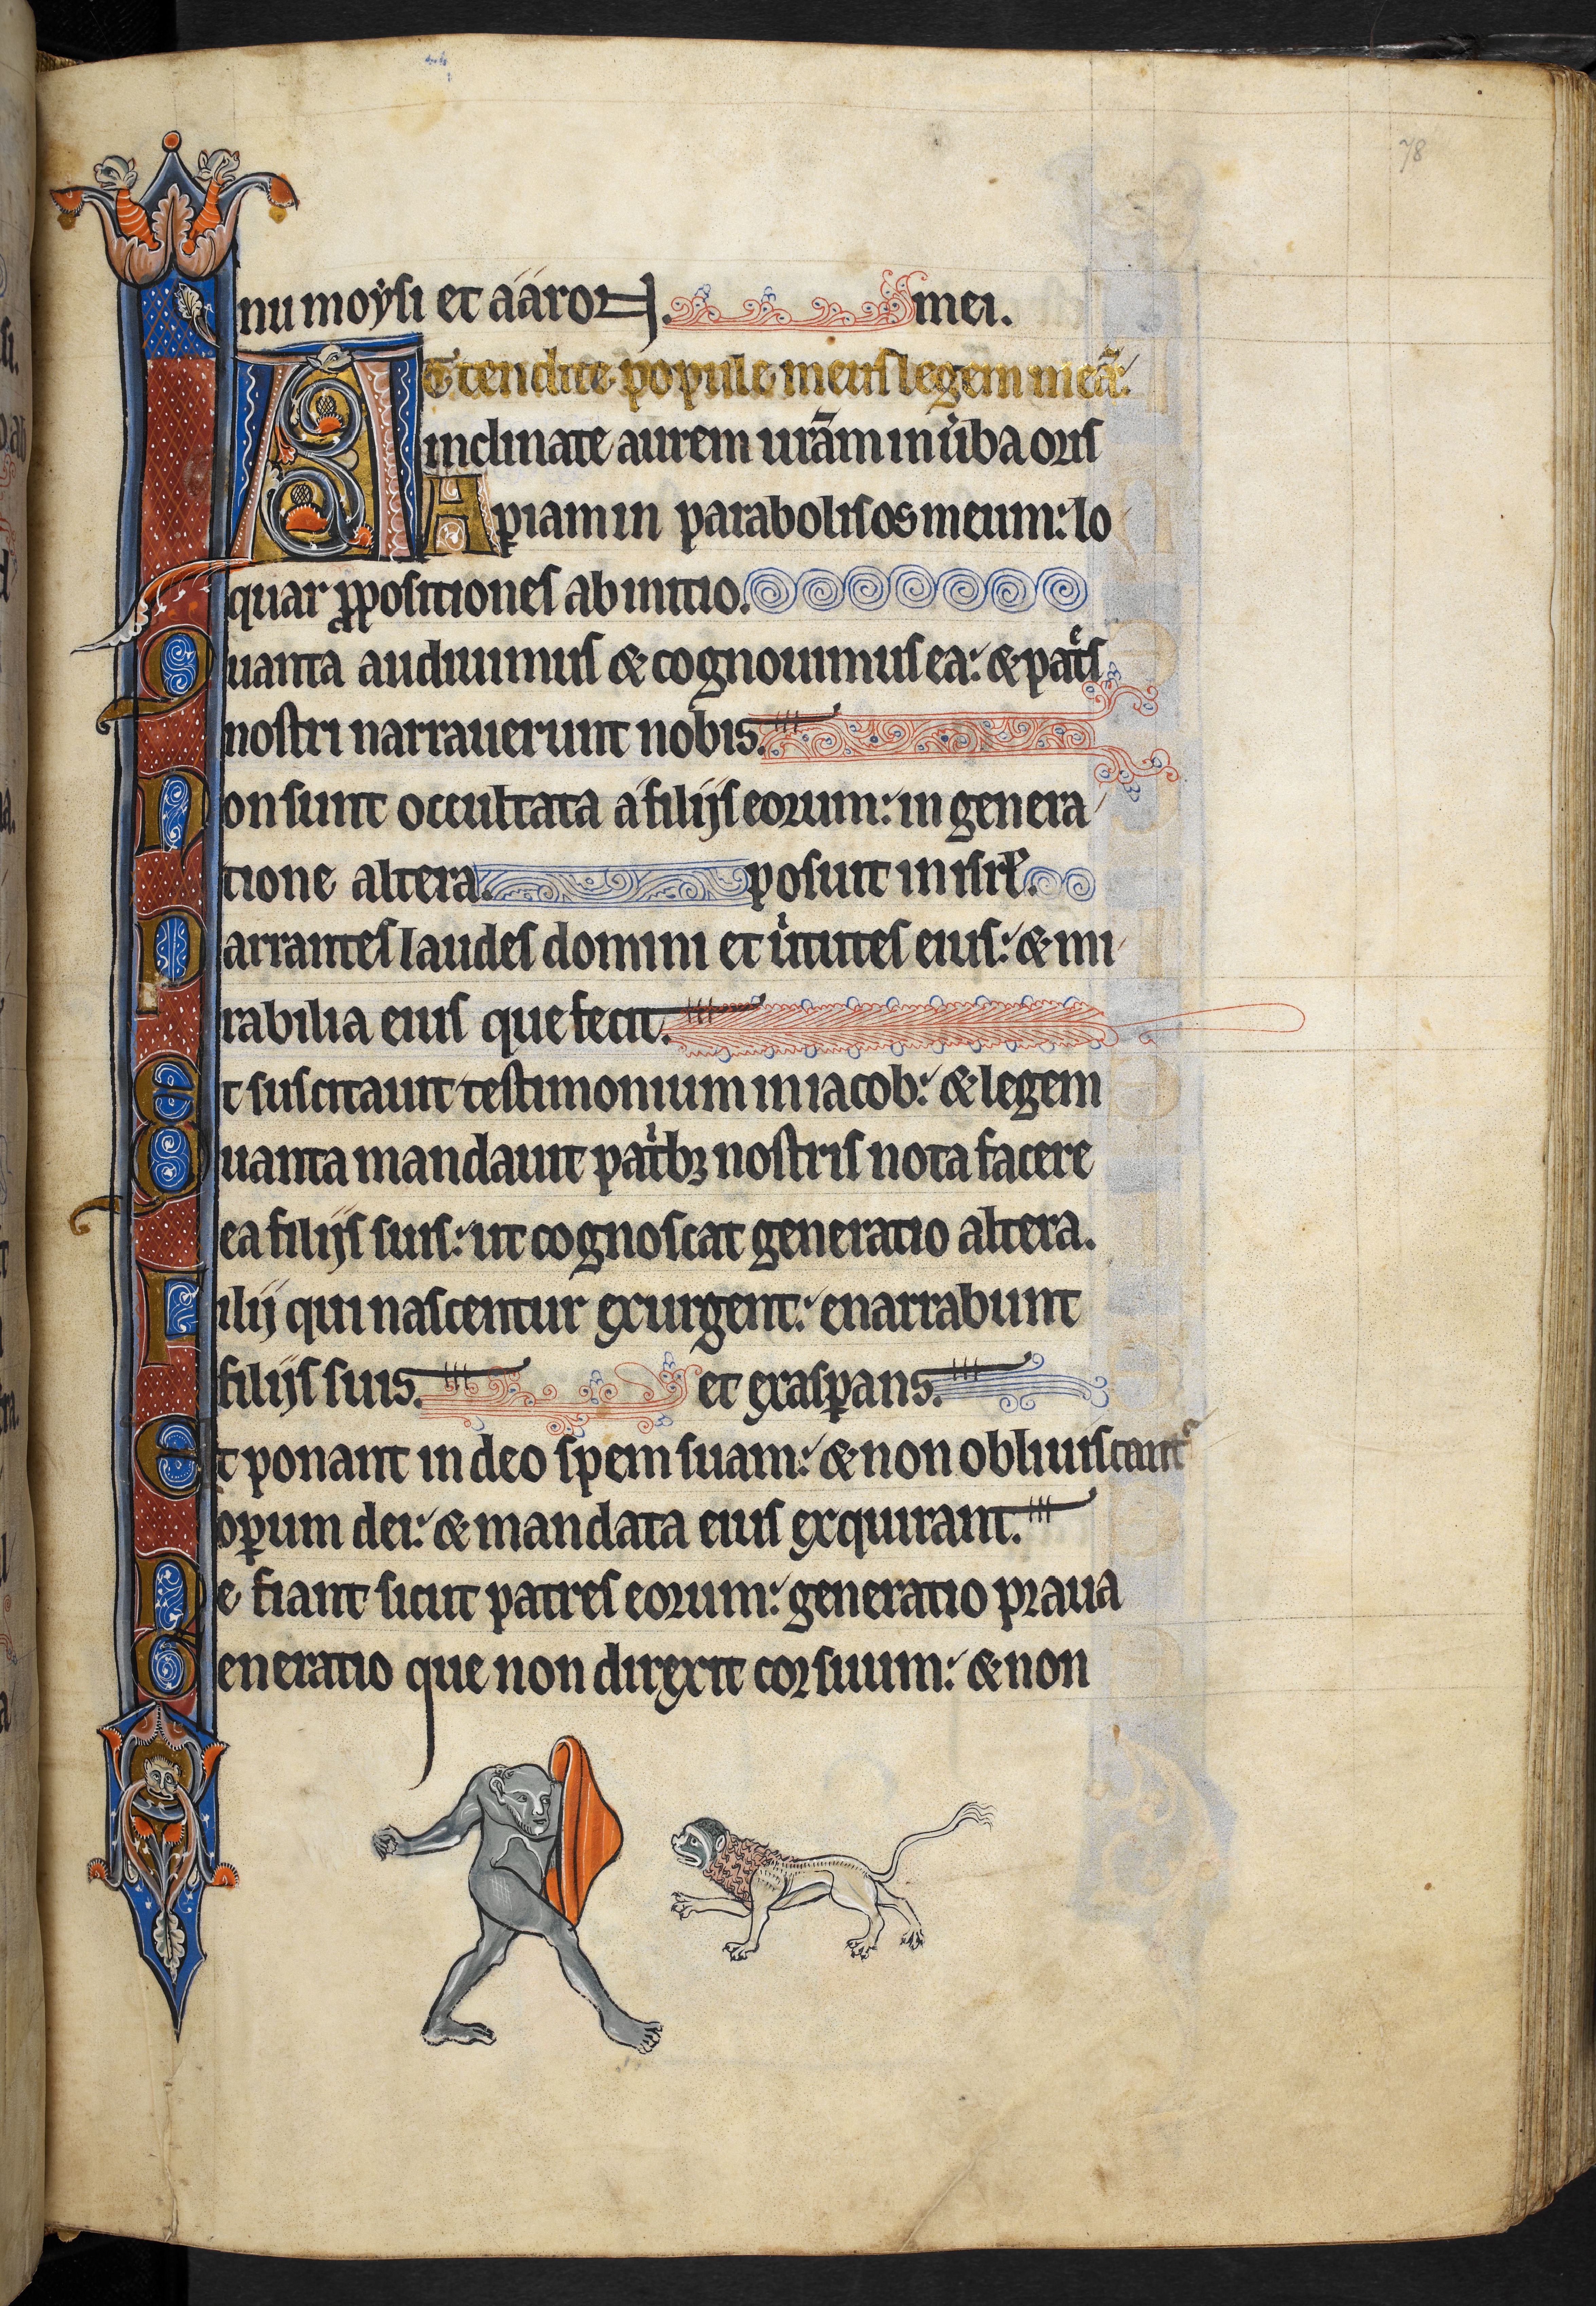 78
nu moysi et aaron. mei.
Attendite popule meus legem meā:
inclinate aurem urām in ūba oris
Aperiam in parabolis os meum: lo
quar propositiones ab initio.
Quanta audiuimus & cognouimus ea: & pat͛s
nostri narrauerunt nobis.
Non sunt occultata a filijs eorum: in genera
tione altera. posuit in isrl̄.
Narrantes laudes domini et uͥtutes eius: & mi
rabilia eius que fecit.
Et suscitauit testimonium in iacob: & legem
Quanta mandauit patͥbꝫ nostris nota facere
ea filijs suis: ut cognoscat generatio altera.
Filij qui nascentur exurgent: enarrabunt
filijs suis. et exaspans.
Et ponant in deo spem suam: & non obliuiscant᷑
oꝑum dei: & mandata eius exquirant.
Ne fiant sicut patres eorum: generatio praua
Generatio que non direxit cor suum: & non